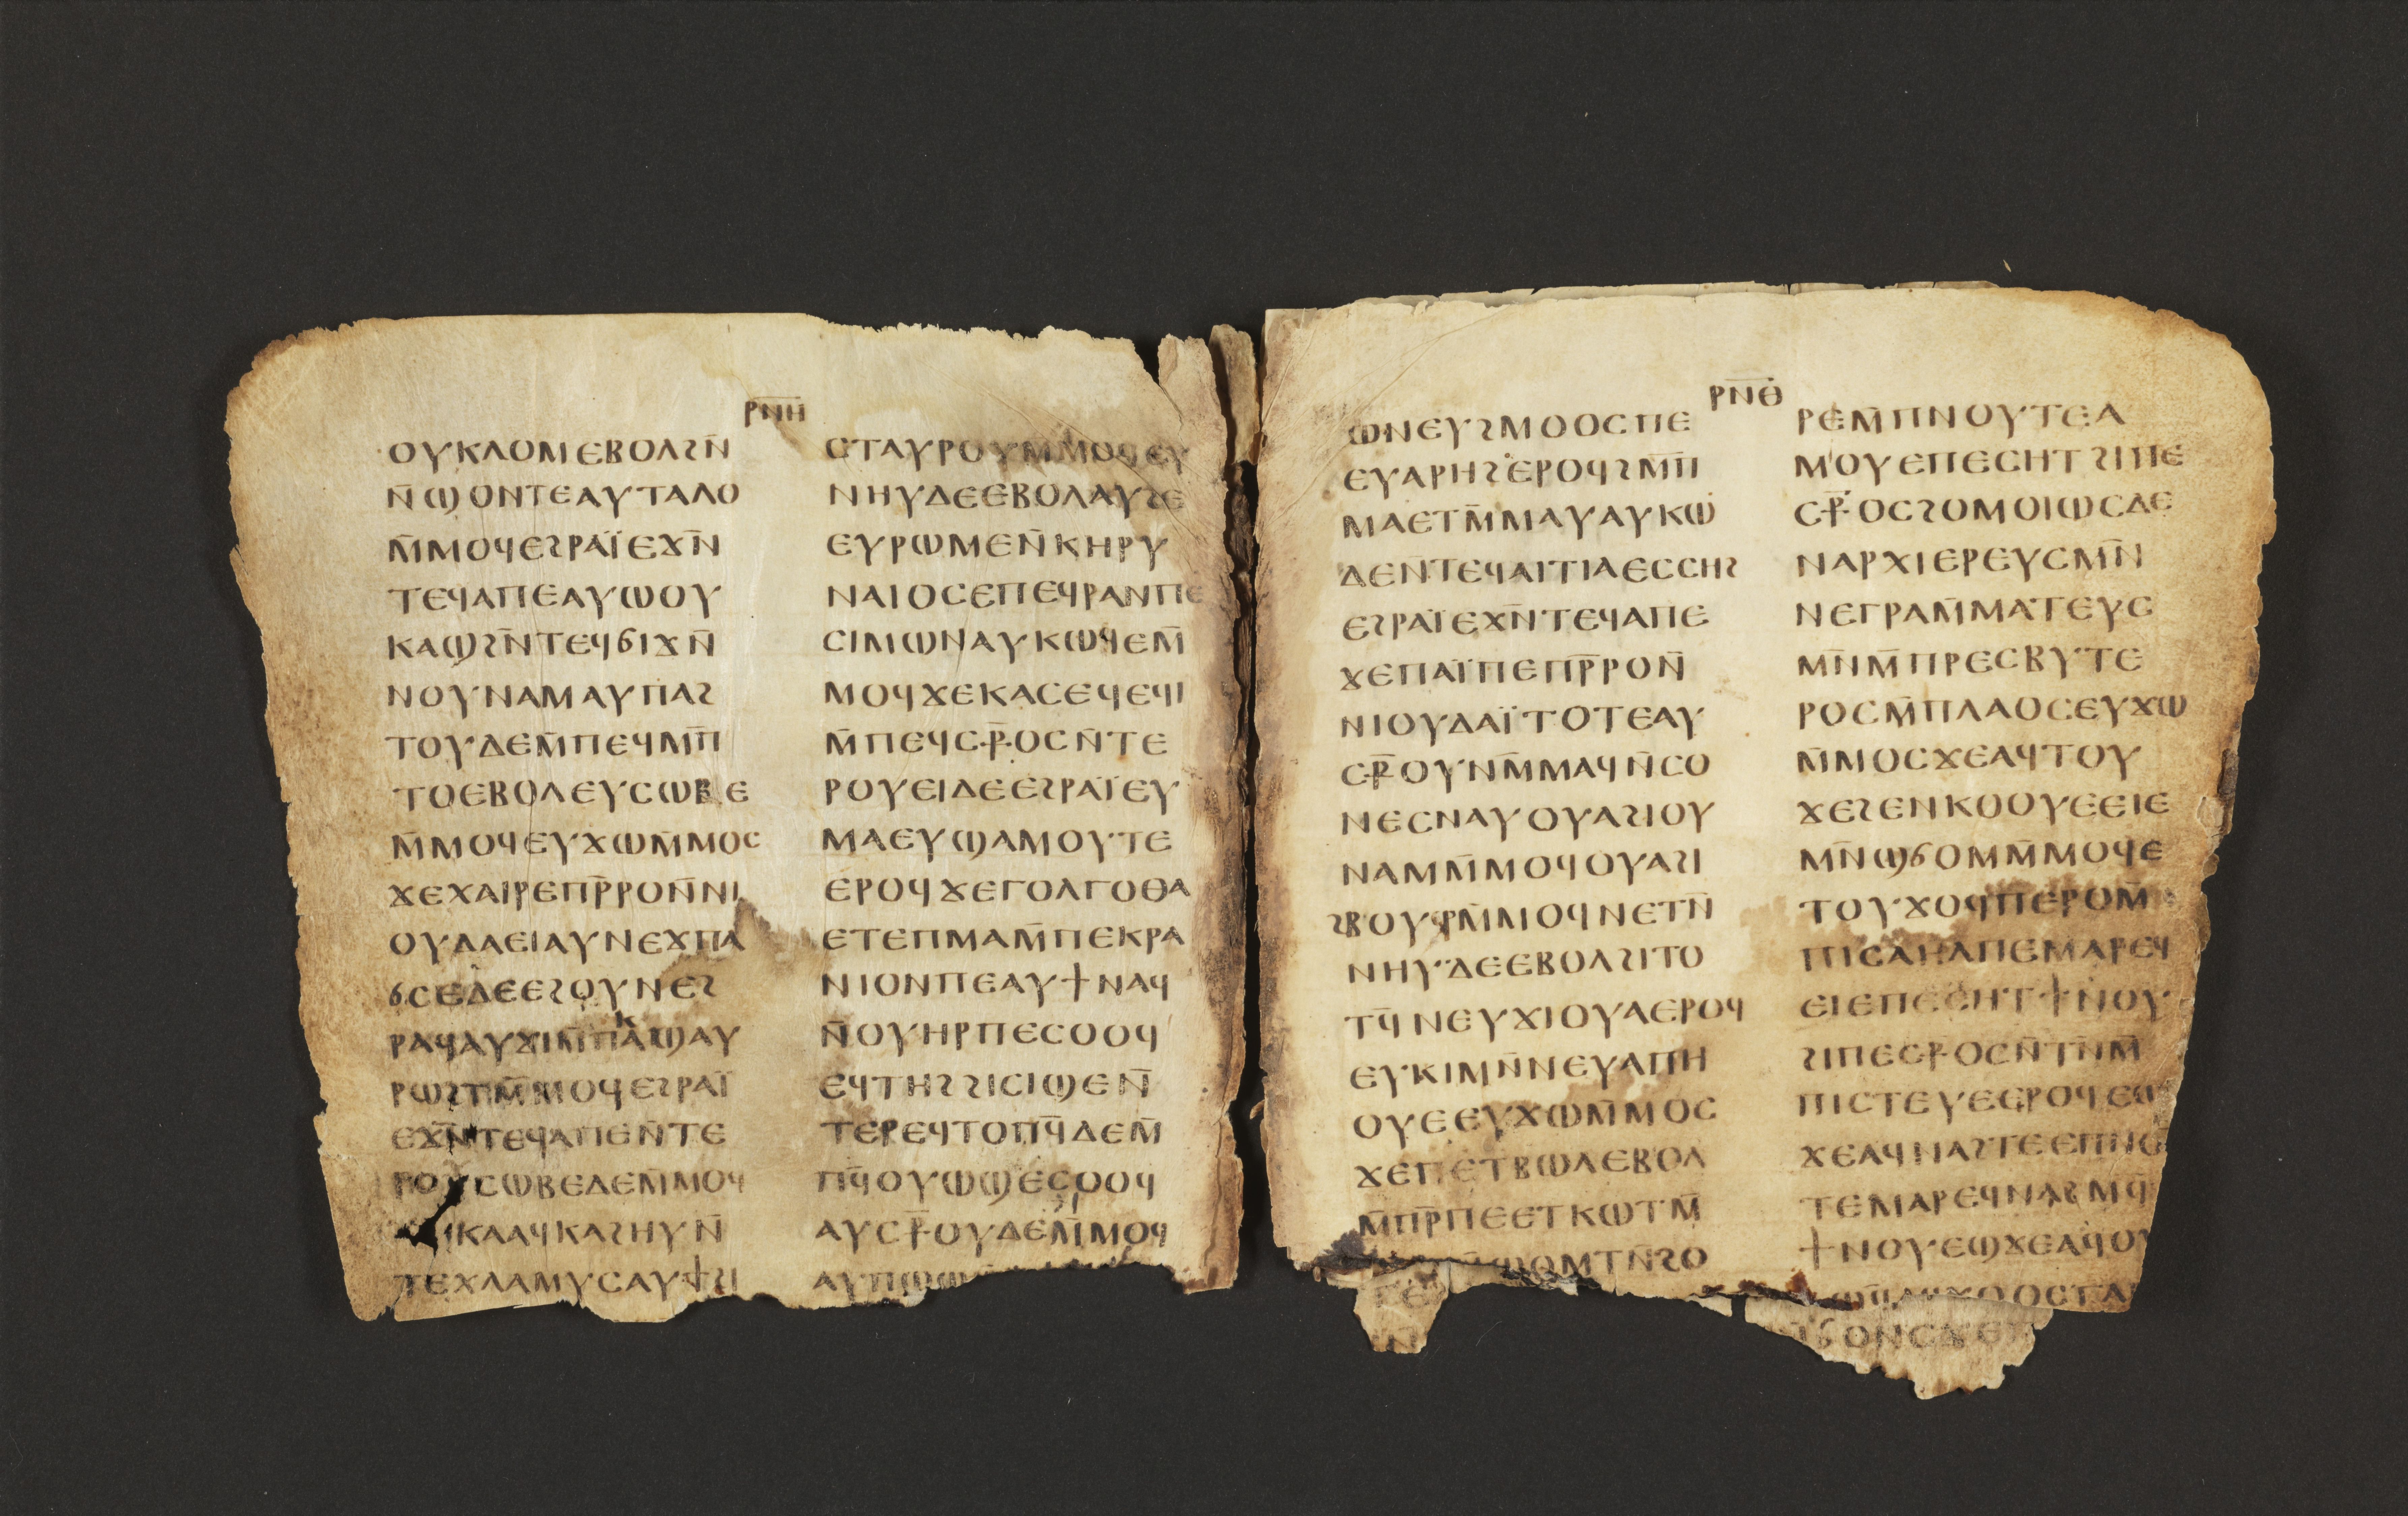 ⲣ̅ⲛ̅ⲏ̅
ⲟⲩⲕⲗⲟⲙⲉⲃⲟⲗϩⲛ̄
ⲛ̄ϣⲟⲛⲧⲉⲁⲩⲧⲁⲗⲟ
ⲙ̄ⲙⲟϥⲉϩⲣⲁϊⲉϫⲛ̄
ⲧⲉϥⲁⲡⲉⲁⲩⲱⲟⲩ
ⲕⲁϣϩⲛ̄ⲧⲉϥϭⲓϫⲛ̄
ⲛⲟⲩⲛⲁⲙⲁⲩⲡⲁϩ
ⲧⲟⲩⲇⲉⲙ̄ⲡⲉϥⲙ̄ⲡ̄
ⲧⲟⲉⲃⲟⲗⲉⲩⲥⲱⲃⲉ
ⲙ̄ⲙⲟϥⲉⲩϫⲱⲙ̄ⲙⲟⲥ
ϫⲉⲭⲁⲓⲣⲉⲡⲣ̄ⲣⲟⲛ̄ⲛⲓ
ⲟⲩⲇⲁⲉⲓⲁⲩⲛⲉϫⲡⲁ
ϭⲥⲉⲇⲉⲉϩⲟⲩⲛⲉϩ
ⲣⲁϥⲁⲩϫⲓⲙ̄ⲡⲕⲁϣⲁⲩ
ⲣⲱϩⲧⲙ̄ⲙⲟϥⲉϩⲣⲁϊ
ⲉϫⲛ̄ⲧⲉϥⲁⲡⲉⲛ̄ⲧⲉ
ⲣⲟⲩⲥⲱⲃⲉⲇⲉⲙ̄ⲙⲟϥ
ⲕⲁⲁϥⲕⲁϩⲏⲩⲛ̄
ⲧⲉⲭⲗⲁⲙⲩⲥⲁⲩϯϩⲓ
ⲥⲧⲁⲩⲣⲟⲩⲙ̄ⲙⲟϥⲉⲩ
ⲛⲏⲩⲇⲉⲉⲃⲟⲗⲁⲩϩⲉ
ⲉⲩⲣⲱⲙⲉⲛ̄ⲕⲏⲣⲩ
ⲛⲁⲓⲟⲥⲉⲡⲉϥⲣⲁⲛⲡⲉ
ⲥⲓⲙⲱⲛⲁⲩⲕⲱϥⲉⲙ̄
ⲙⲟϥϫⲉⲕⲁⲥⲉϥⲉϥⲓ
ⲙ̄ⲡⲉϥⲥ⳨ⲟⲥⲛ̄ⲧⲉ
ⲣⲟⲩⲉⲓⲇⲉⲉϩⲣⲁϊⲉⲩ
ⲙⲁⲉⲩϣⲁⲙⲟⲩⲧⲉ
ⲉⲣⲟϥϫⲉⲅⲟⲗⲅⲟⲑⲁ
ⲉⲧⲉⲡⲙⲁⲙ̄ⲡⲉⲕⲣⲁ
ⲛⲓⲟⲛⲡⲉⲁⲩϯⲛⲁϥ
ⲛ̄ⲟⲩⲏⲣⲡⲉⲥⲟⲟϥ
ⲉϥⲧⲏϩϩⲓⲥⲓϣⲉⲛ̄
ⲧⲉⲣⲉϥⲧⲟⲡϥ̄ⲇⲉⲙ̄
ⲡϥ̄ⲟⲩⲱϣⲉⲥⲟⲟϥ
ⲁⲩⲥ⳨ⲟⲩⲇⲉⲙ̄ⲙⲟϥ
ⲁⲩⲡⲱϣ
ⲣ̅ⲛ̅ⲑ̅
ⲱⲛⲉⲩϩⲙⲟⲟⲥⲡⲉ
ⲉⲩⲁⲣⲏϩⲉⲣⲟϥϩⲙ̄ⲡ̄
ⲙⲁⲉⲧⲙ̄ⲙⲁⲩⲁⲩⲕⲱ
ⲇⲉⲛ̄ⲧⲉϥⲁⲓⲧⲓⲁⲉⲥⲥⲏϩ
ⲉϩⲣⲁϊⲉϫⲛ̄ⲧⲉϥⲁⲡⲉ
ϫⲉⲡⲁϊⲡⲉⲡⲣ̄ⲣⲟⲛ̄
ⲛⲓⲟⲩⲇⲁϊⲧⲟⲧⲉⲁⲩ
ⲥ⳨ⲟⲩⲛⲙ̄ⲙⲁϥⲛ̄ⲥⲟ
ⲛⲉⲥⲛⲁⲩⲟⲩⲁϩⲓⲟⲩ
ⲛⲁⲙⲙ̄ⲙⲟϥⲟⲩⲁϩⲓ
ϩⲃⲟⲩⲣⲙ̄ⲙⲟϥⲛⲉⲧⲛ̄
ⲛⲏⲩⲇⲉⲉⲃⲟⲗϩⲓⲧⲟ
ⲧϥ̄ⲛⲉⲩϫⲓⲟⲩⲁⲉⲣⲟϥ
ⲉⲩⲕⲓⲙⲛ̄ⲛⲉⲩⲁⲡⲏ
ⲟⲩⲉⲉⲩϫⲱⲙ̄ⲙⲟⲥ
ϫⲉⲡⲉⲧⲃⲱⲗⲉⲃⲟⲗ
ⲙ̄ⲡⲣ̄ⲡⲉⲉⲧⲕⲱⲧⲙ̄
ϣⲟⲙⲧⲛ̄ϩⲟ
ⲣⲉⲙ̄ⲡⲛⲟⲩⲧⲉⲁ
ⲙⲟⲩⲉⲡⲉⲥⲏⲧϩⲓⲡⲉ
ⲥ⳨ⲟⲥϩⲟⲙⲟⲓⲱⲥⲇⲉ
ⲛⲁⲣⲭⲓⲉⲣⲉⲩⲥⲙⲛ̄
ⲛⲉⲅⲣⲁⲙⲙⲁⲧⲉⲩⲥ
ⲙⲛ̄ⲙ̄ⲡⲣⲉⲥⲃⲩⲧⲉ
ⲣⲟⲥⲙ̄ⲡⲗⲁⲟⲥⲉⲩϫⲱ
ⲙ̄ⲙⲟⲥϫⲉⲁϥⲧⲟⲩ
ϫⲉϩⲉⲛⲕⲟⲟⲩⲉⲉⲓⲉ
ⲙⲛ̄ϣϭⲟⲙⲙ̄ⲙⲟϥⲉ
ⲧⲟⲩϫⲟϥⲡⲉⲣⲟⲙ̄
ⲡⲓⲥⲁⲏⲗⲡⲉⲙⲁⲣⲉϥ
ⲉⲓⲉⲡⲉⲥⲏⲧϯⲛⲟⲩ
ϩⲓⲡⲉⲥ⳨ⲟⲥⲛ̄ⲧⲛ̄ⲙ̄
ⲡⲓⲥⲧⲉⲩⲉⲉⲣⲟϥⲉϣ
ϫⲉⲁϥⲛⲁϩⲧⲉⲉⲡⲛⲟ
ⲧⲉⲙⲁⲣⲉϥⲛⲁϩⲙϥ̄
ϯⲛⲟⲩⲉϣϫⲉⲁϥⲟⲩ
ϫⲟⲟⲥⲧⲁ
ϭⲟⲛⲥϫⲉ